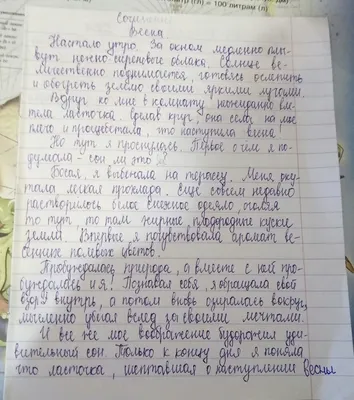 100 литрам (л)
Сочинение
Весна
Настало утро. За окном медленно плы-
вут нежно-сиреневые облака. Солнце ве-
личественно поднимается, готовясь осветить
и обогреть землю своими яркими лучами.
Вдруг ко мне в комнату неожиданно вле-
тела ласточка. Сделав круг, она села на мое
плечо и прощебетала, что наступила весна!
Но тут я проснулась. Первое о чем я по-
думала - сон ли это?
Босая, я выбежала на террасу. Меня оку-
тала легкая прохлада. Еще совсем недавно
растворилось белое снежное одеяло, оголяя
то тут, то там жирные, плодородные куски
земли. Впервые я почувствовала аромат ве-
сенних полевых цветов.
Пробуждалась природа, а вместе с ней про-
буждалась и я! Познавая себя, я обращала свой
взор внутрь, а потом вновь озиралась вокруг,
мысленно увлекая вслед за своими мечтами.
И все же мое воображение будоражил уди-
вительный сон. Только к концу дня я поняла
что ласточка, шептавшая о наступлении весны